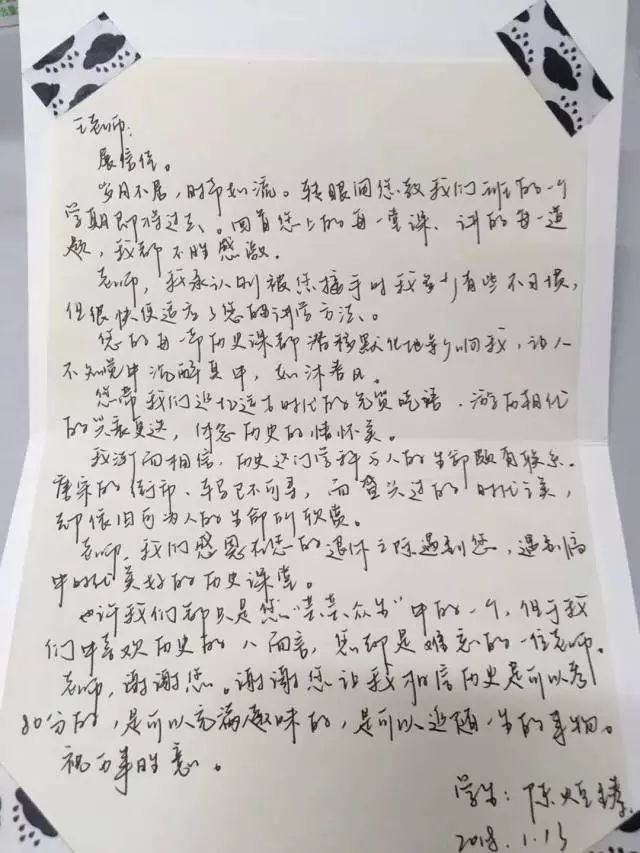 王老师：
展信佳。
岁月不居，时节如流。转眼间您教我们班的一个
学期即将过去。回首您上的每一堂课、讲的每一道
题，我都不胜感激。
老师，我承认刚被您接手时我多少有些不习惯，
但很快便适应了您的讲学方法。
您的每一节历史课都潜移默化地影响我，让人
不知觉中沉醉其中，如沐春风。
您带我们追忆远古时代的先贤，游历朝代
的兴衰更迭，体念历史的情怀美。
我渐而相信，历史这门学科与人的生命颇有联系。
唐宋的街市、车马已不可寻，而登头过的时代之美，
却依旧可为人的生命所欣赏。
老师，我们感恩在您的退休之际遇到您，遇到高
中时代美好的历史课堂。
也许我们都只是您“芸芸众生”中的一个，但于我
们中喜欢历史的人而言，您却是难忘的一位老师。
老师，谢谢您。谢谢您让我相信历史是可以考
80分的，是可以充满趣味的，是可以追随一生的事物。
祝万事胜意。
学生：陈
2018.1.15